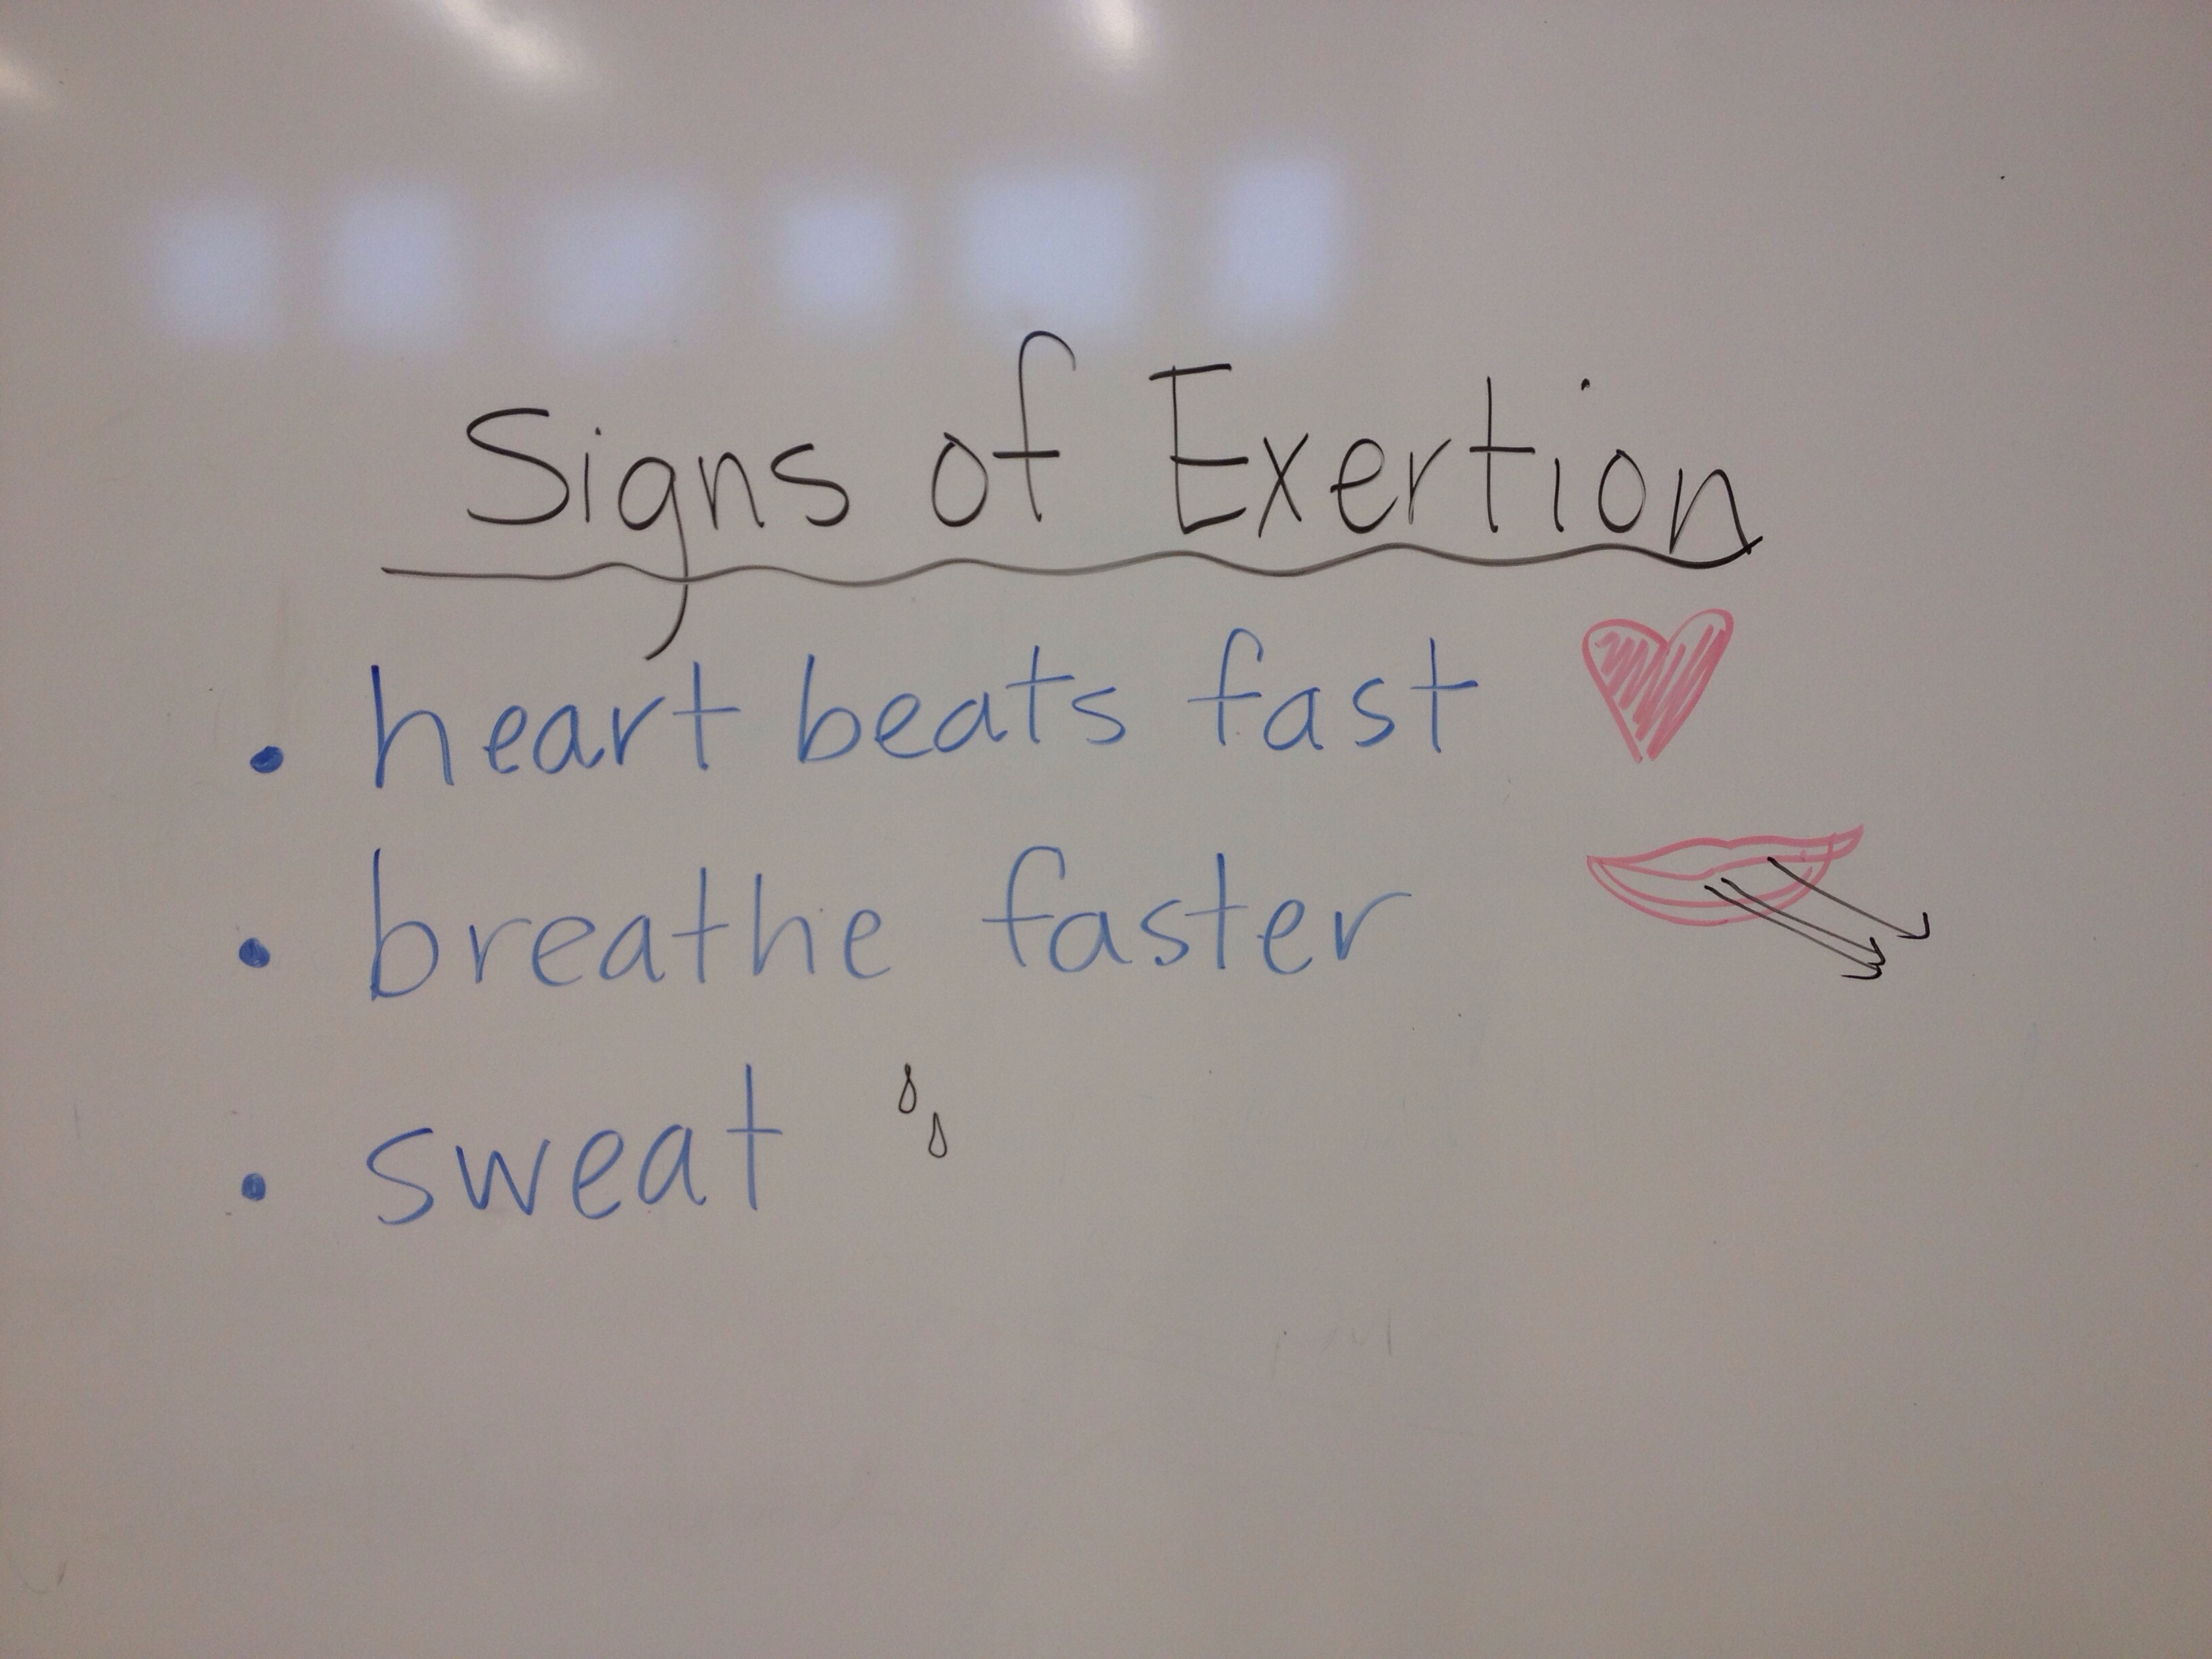 Signs of Exertion
• heart beats fast
• breathe faster
• sweat